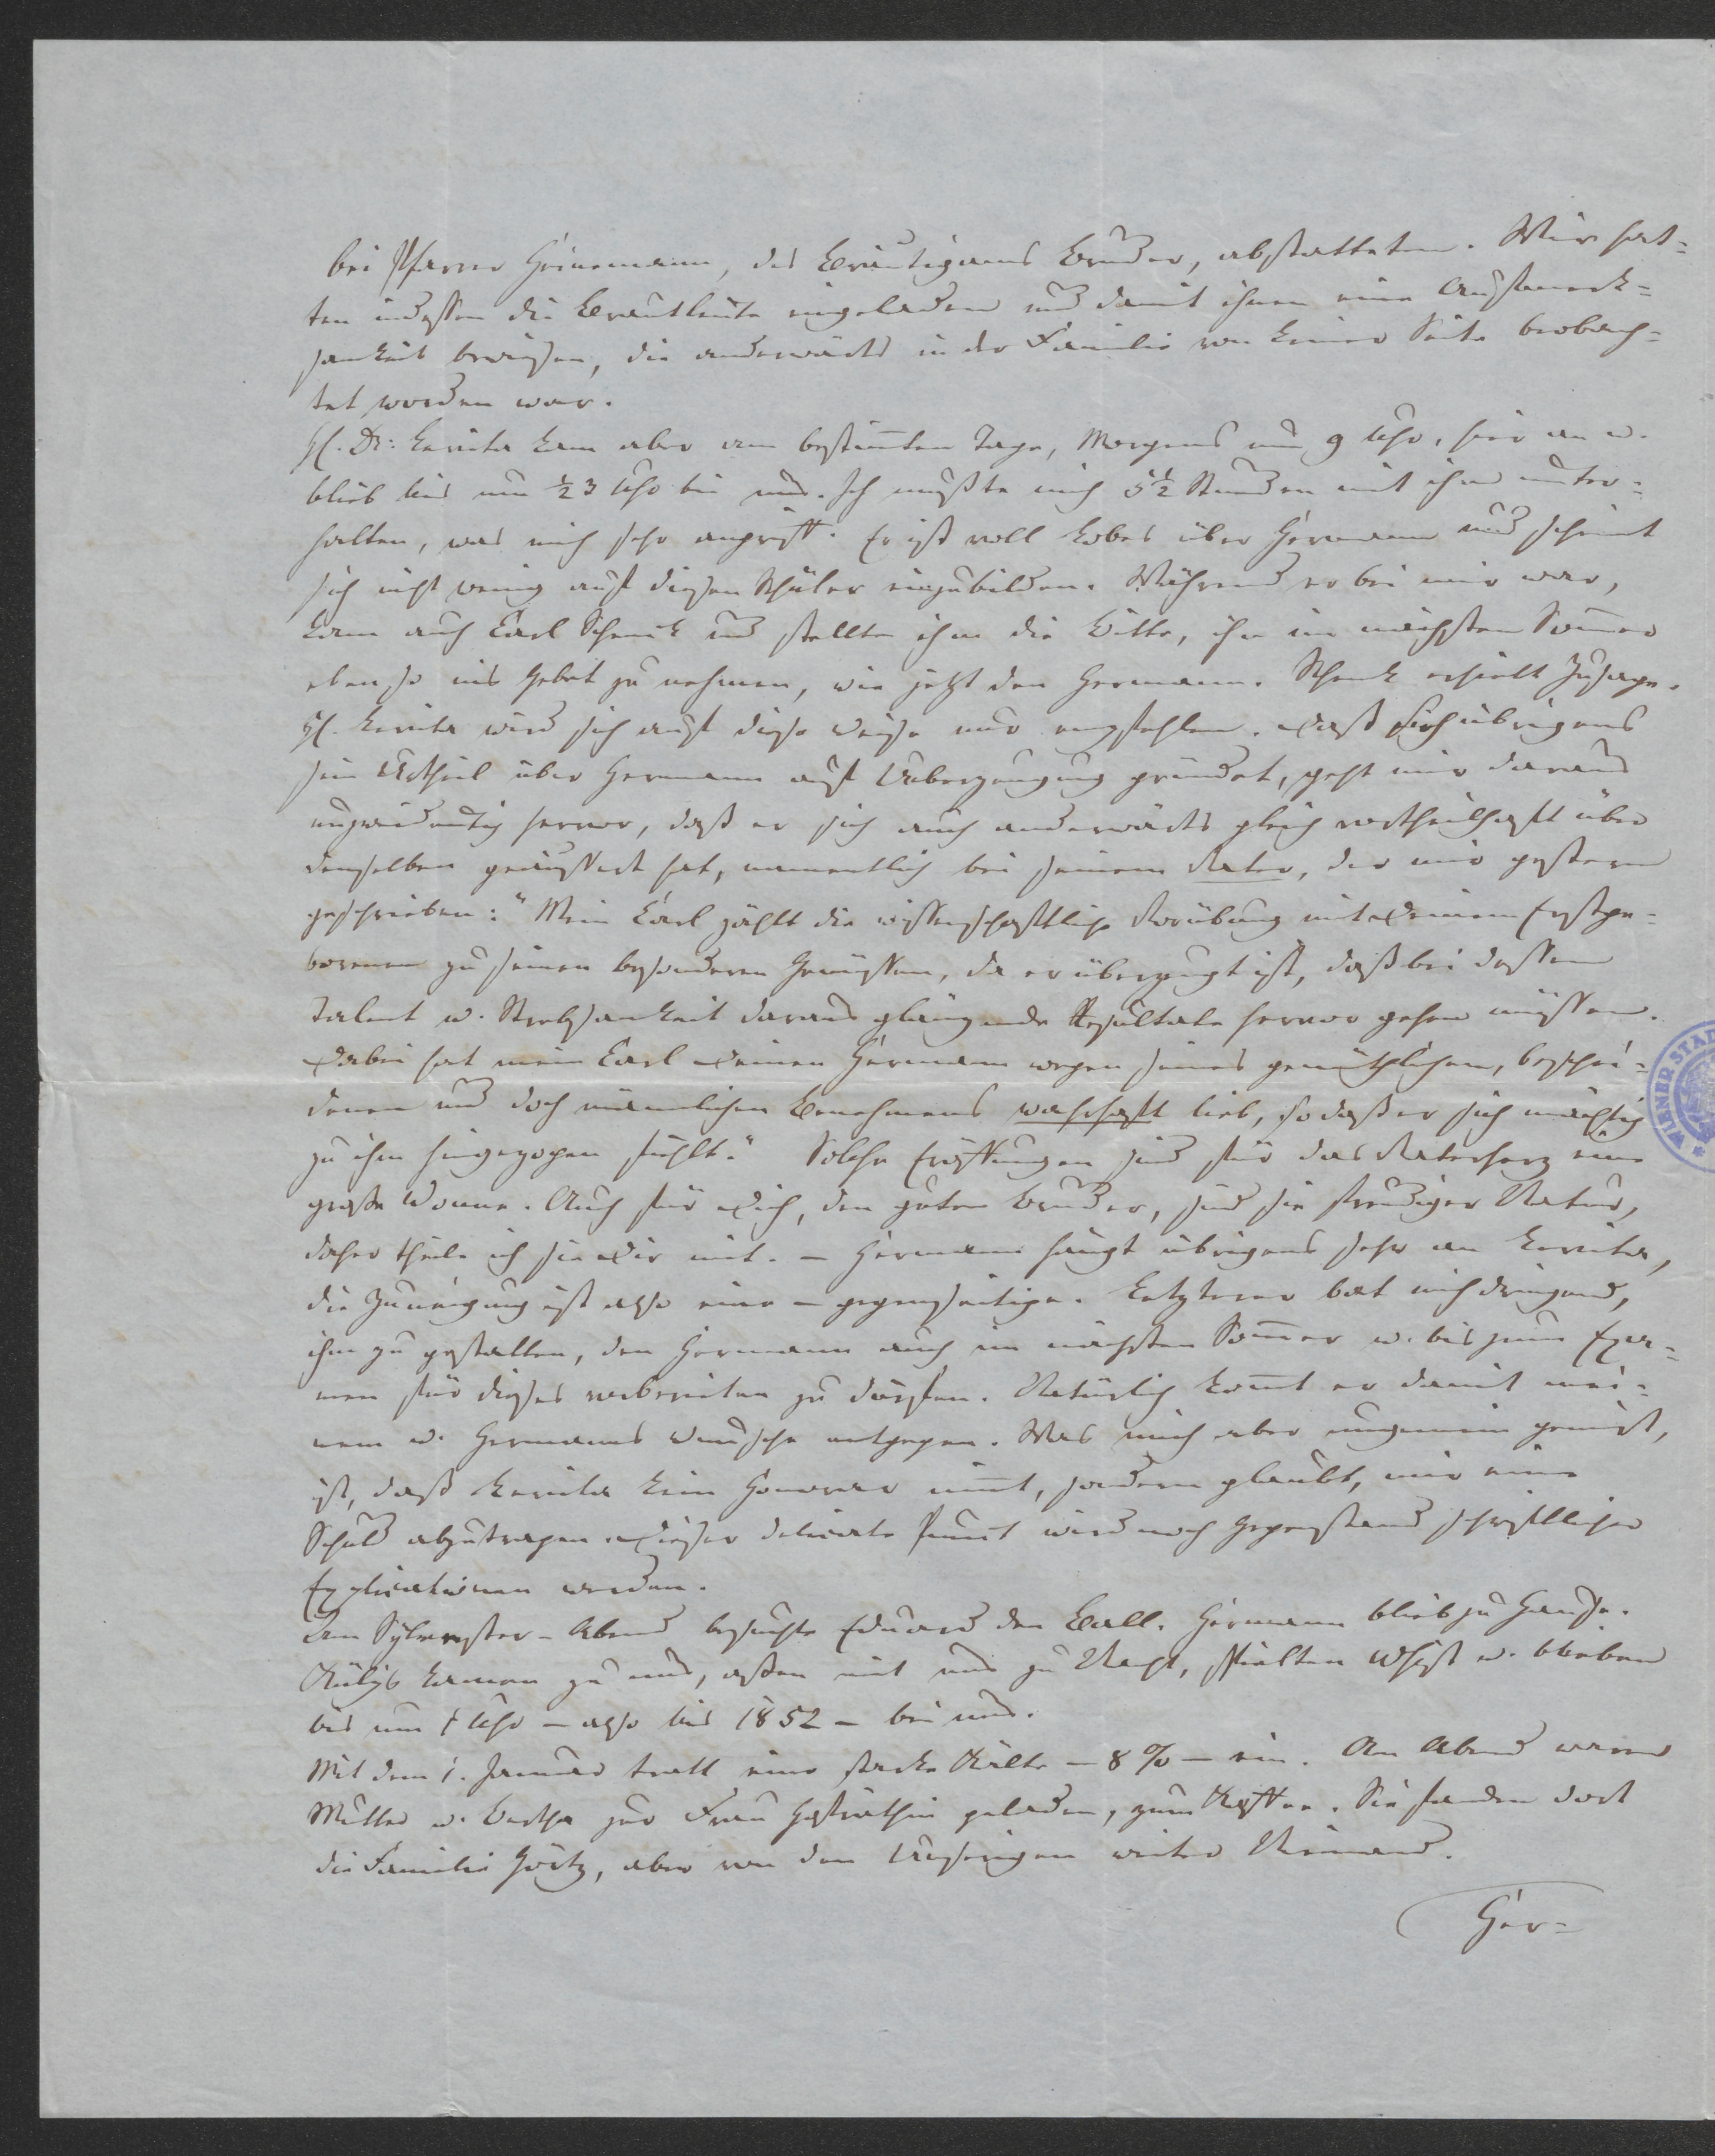 bei Pfarrer Heinemann, des Bräutigams Bruder, abstatteten. Wir hat-
ten indessen die Brautleute eingeladen und damit ihnen eine Aufmerk-
samkeit bewiesen, die anderwärts in der Familie von keiner Seite beobach-
tet worden war.
H. Dr: kam aber am bestim̅ten Tage, Morgens um 9 Uhr, hier an u.
blieb bis um ½ 3 Uhr bei uns. Ich mußte mich 5½ Stunden mit ihm unter-
halten, was mich sehr angriff. Er ist voll Lobes über Hermann und scheint
sich nicht wenig auf diesen Schüler einzubilden. Während er bei mir war,
kam auch Carl Schenk und stellte ihm die Bitte, ihn im nächsten Som̅er
ebenso ins Gebet zu nehmen, wie jetzt den Hermann. Schenk erhielt Zusage.
H. wird sich auf diese Weise nur empfehlen. Daß sich übrigens
sein Urtheil über Hermann auf Ueberzeugung gründet, geht mir daraus
unzweideutig hervor, daß er sich auch anderwärts gleich vortheilhaft über
denselben geäussert hat, namentlich bei seinem Vater, der mir gestern
geschrieben: "Mein Carl zählt die wissenschaftliche Vorübung mit Deinem Erstge-
borenen zu seinen besonderen Genüssen, da er überzeugt ist, daß bei dessen
Talent u. Strebsamkeit daraus glänzende Resultate hervor gehen müssen.
Dabei hat mein Carl Deinen Hermann wegen seines gemüthlichen, beschei-
denen und doch männlichen Benehmens wahrhaft lieb, so daß er sich mächtig
zu ihm hingezogen fühlt." Solche Eröffnungen sind für das Vaterherz eine
große Wonne. Auch für Dich, den guten Bruder, sind sie freudiger Natur,
daher theile ich sie Dir mit. – Hermann hängt übrigens sehr an
die Zuneigung ist also eine – gegenseitige. Letzterer bat mich dringend,
ihm zu gestatten, den Hermann auch im nächsten Som̅er u. bis zum Exa-
men für dieses vorbereiten zu dürfen. Natürlich kom̅t er damit mei-
nem u. Hermanns Wunsche entgegen. Was mich aber ungemein genirt,
ist, daß kein Honorar nim̅t, sondern glaubt, mir eine
Schuld abzutragen. Dieser delicate Punct wird noch Gegenstand schriftlicher
Explicationen werden.
Am Sylvester-Abend besuchte Eduard den Ball. Hermann blieb zu Hause.
kamen zu uns, aßen mit uns zu Nacht, spielten Whist u. blieben
bis um 1 Uhr – also bis 1852 – bei uns.
Mit dem 1. Januar tratt eine starke Kälte – 8 % – ein. Am Abend waren
Mutter u. Bertha zur Frau Hofräthin geladen, zum Kaffee. Sie fanden dort
die Familie Götz, aber von den Unsrigen weiter Niemand.
Her-
WIENER STAD